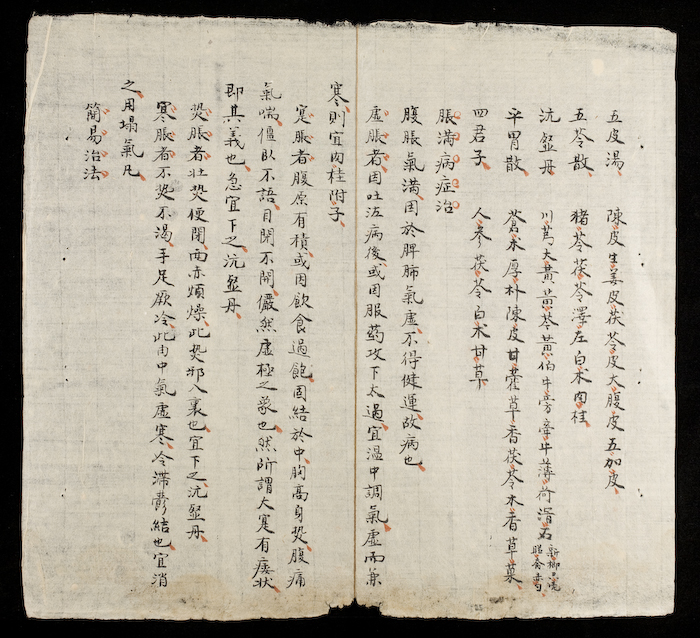 五皮湯 陳皮生姜皮茯苓皮大腹皮五加皮
五苓散 猪苓茯苓澤左白朮肉桂
沆瀣丹 川芎大黃黃芩黃伯牛蒡牽牛薄荷滑石
平胃散 蒼朮厚朴陳皮甘藿草香茯苓木香草菓
四君子 人參茯苓白朮甘草
脹滿病症治
腹脹氣滿因於脾肺氣虛不得健運故病也
虛脹者因吐泻病後或因服药攻下太過宜溫中調氣虛而兼
寒則宜肉桂附子
寔脹者腹原有積或因飲食過飽固結於中胸高身熒腹痛
氣喘僵臥不語目閉不開儼然虛極之象也然所謂大寔有痿状
即其義也急宜下之沆瀣丹
熒脹者壮熒便閉面赤煩燥此熒邪入裏也宜下之沆瀣丹
寒脹者不熒不渴手足厥冷此由中氣虛寒冷滞欝結也宜消
之用塌氣凡
簡易治法